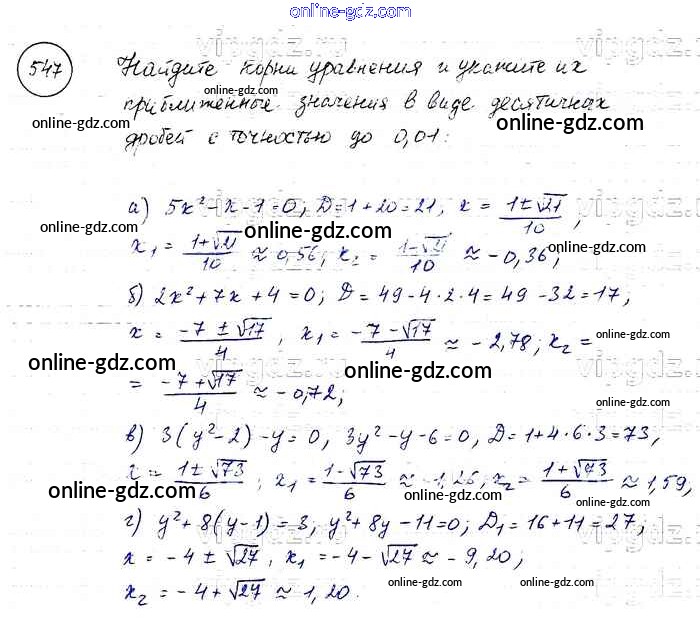 online-gdz.com
547 Найдите корни уравнения и укажите их
приближенные значения в виде десятичных
дробей с точностью до 0,01:
online-gdz.com online-gdz.com
а) 5x² - x - 1 = 0; D = 1 + 20 = 21, x = (1 ± √21)/10,
online-gdz.com online-gdz.com online-gdz.com
x₁ = (1 + √21)/10 ≈ 0,56; x₂ = (1 - √21)/10 ≈ -0,36;
б) 2x² + 7x + 4 = 0; D = 49 - 4 · 2 · 4 = 49 - 32 = 17;
x = (-7 ± √17)/4, x₁ = (-7 - √17)/4 ≈ -2,78; x₂ =
online-gdz.com online-gdz.com online-gdz.com
= (-7 + √17)/4 ≈ -0,72;
online-gdz.com
в) 3(y² - 2) - y = 0, 3y² - y - 6 = 0, D = 1 + 4 · 6 · 3 = 73,
= (1 ± √73)/6; x₁ = (1 - √73)/6 ≈ -1,26, x₂ = (1 + √73)/6 ≈ 1,59,
online-gdz.com online-gdz.com online-gdz.com
г) y² + 8(y - 1) = 3, y² + 8y - 11 = 0; D₁ = 16 + 11 = 27;
x = -4 ± √27, x₁ = -4 - √27 ≈ -9,20;
online-gdz.com online-gdz.com online-gdz.com
x₂ = -4 + √27 ≈ 1,20.